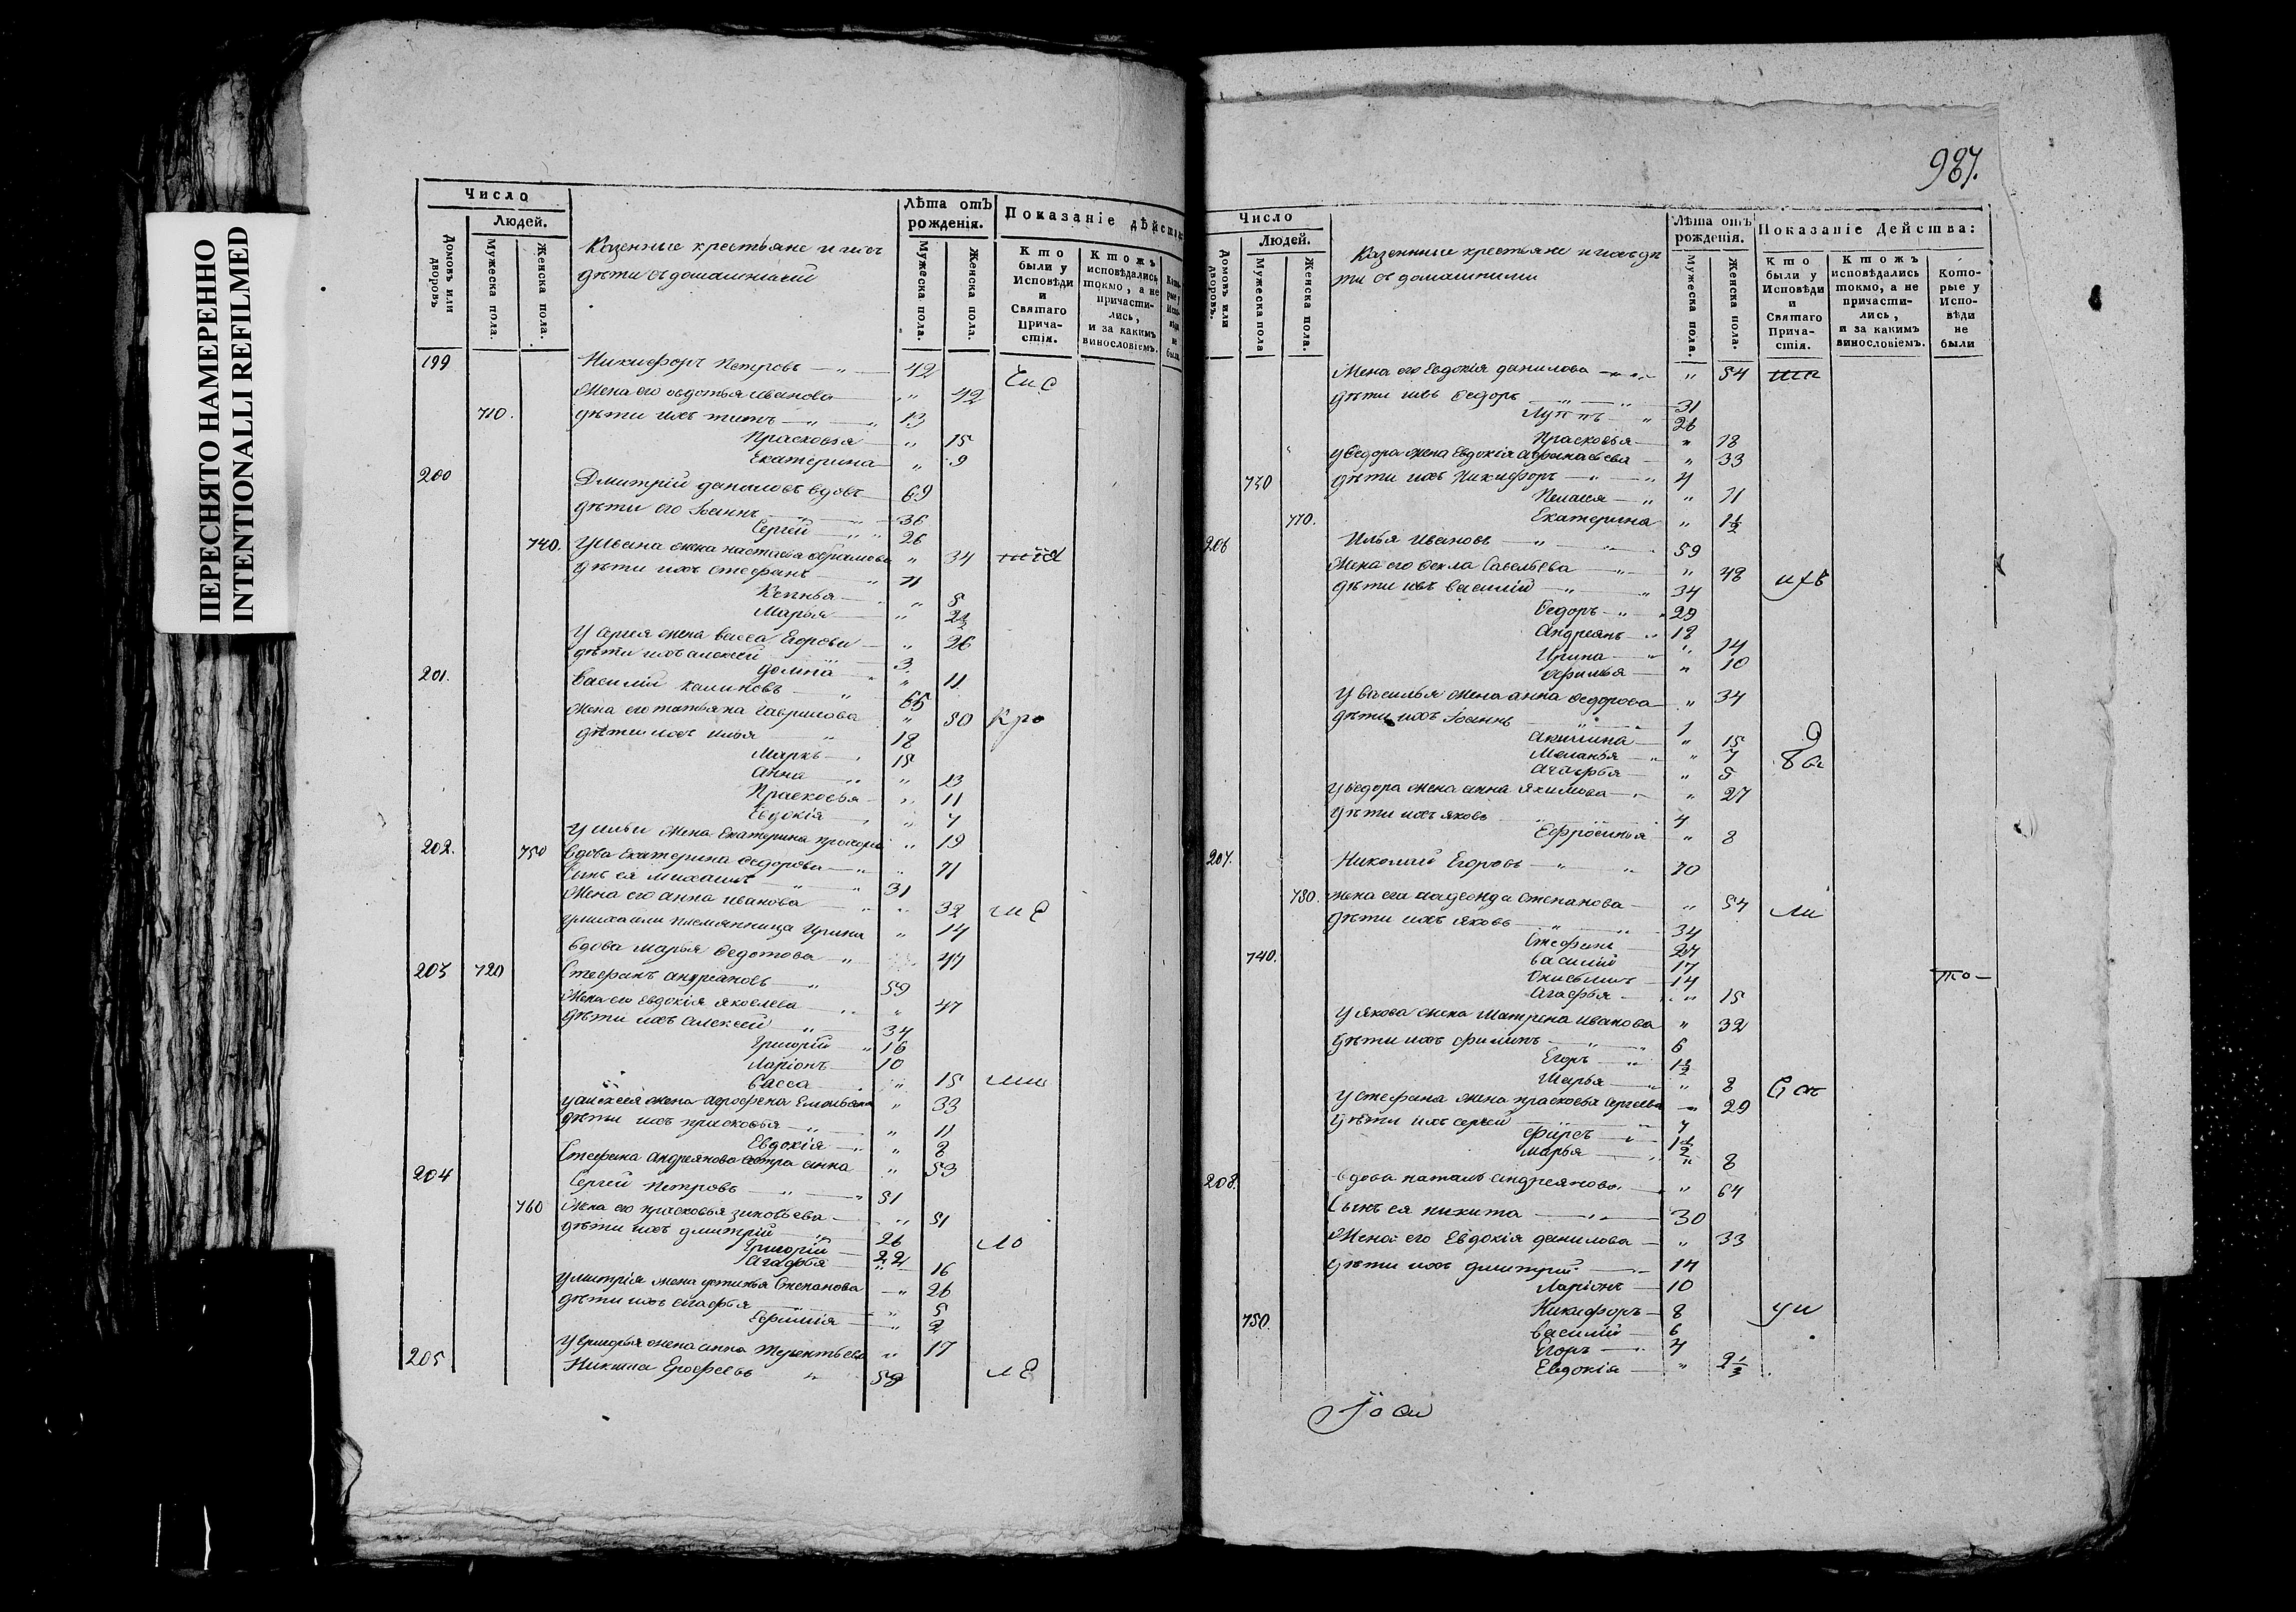 ПЕРЕСНЯТО НАМЕРЕННО
INTENTIONALLI REFILMED
Число
Людей.
Домовъ или дворовъ
Мужеска пола.
Женска пола.
Казенные крестьяне и ихъ
дѣти съ домашними
Лѣта отъ рожденія.
Мужеска пола.
Женска пола.
Показаніе дѣйства
Кто были у Исповѣди и Святаго Причастія.
Ктожъ исповѣдались токмо, а не причастились, и за какимъ винословіемъ.
199 Никифоръ Петровъ 42
Жена его овдотья иванова " 42
710. дѣти ихъ титъ 13
Прасковья " 15
Екатерина " 9
200 Дмитрій даниловъ вдовъ 69
дѣти его Іоаннъ 36
Сергей 26
740. Жена настасья 34
дѣти ихъ Стефанъ 11
Ксенья " 5
Марья "
У Сергея жена васса Егорова " 26
дѣти ихъ алексей 3
домна " 11
201. Василій 65
Жена его татьяна гаврилова " 50 Кро
дѣти ихъ илья 18
Маркъ 15
Анна " 13
Прасковья " 11
Евдокія " 7
У ильи жена Екатерина " 19
202. 750 вдова Екатерина Федорова " 71
Сынъ ея Михаилъ 31
Жена его анна иванова " 32
У михаила племянница Ирина " 14
вдова Марья Федотова " 47
203 720 Стефанъ андреяновъ 59
Жена его Евдокія яковлева " 47
дѣти ихъ алексей 34
Григорій 16
Ларіонъ 10
васса " 15
У алексея жена " 33
дѣти ихъ прасковья " 11
Евдокія " 8
Стефана андреянова сестра анна " 53
204 Сергей Петровъ 51
760 Жена его прасковья зиновьева " 51
дѣти ихъ дмитрій 26 ло
Григорій 22
Агафья " 16
У митрія жена устинья Степанова " 26
дѣти ихъ агафья " 5
Ефимія " 2
У григорья жена анна терентьева " 17
205 Никита Ерофеевъ ле
987.
Число
Людей.
Домовъ или дворовъ.
Мужеска пола
Женска пола.
Казенные крестьяне и ихъ дѣ
ти съ домашними
Лѣта отъ рожденія.
Мужеска пола.
Женска пола.
Показаніе Действа:
Кто были у Исповѣди и Святаго Причастія.
Ктожъ исповѣдались токмо, а не причастились, и за какимъ винословіемъ.
Которые у Исповѣди не были
Жена его Евдокія данилова " 54
дѣти ихъ Федоръ 31
Луппъ 26
Прасковья " 18
У Федора жена Евдокія афанасьева " 33
730 дѣти ихъ Никифоръ 4
Пелагея " 11
770. Екатерина " 1½
206 Илья Ивановъ 59
Жена его Фекла Савельева " 48 ихъ
дѣти ихъ василій 34
Федоръ 29
Андреянъ 18
Ирина " 14
афимья " 10
У василья жена анна Федорова " 34
дѣти ихъ Іоаннъ 1
акилина " 15
Меланья " 7
Агафья " 5
У Федора жена анна якимова " 27
дѣти ихъ яковъ 4
Ефросинья " 8
207. Николай Егоровъ 70
780. Жена его Степанова " 54 ли
дѣти ихъ яковъ 34
Стефанъ 27
740. василій 17
14 то
Агафья " 15
У якова жена Матрена иванова " 32
дѣти ихъ филипъ 6
Егоръ 1½
Марья " 8
У Стефана жена прасковья Сергеева " 29
дѣти ихъ сергей 7
фирсъ 1½
марья " 8
208. вдова наталья андреянова " 64
Сынъ ея никита 30
Жена его Евдокія данилова " 33
дѣти ихъ дмитрій 14
Ларіонъ 10
Никифоръ 8 ум
750. василій 6
Егоръ 4
Евдокія "
Іоан